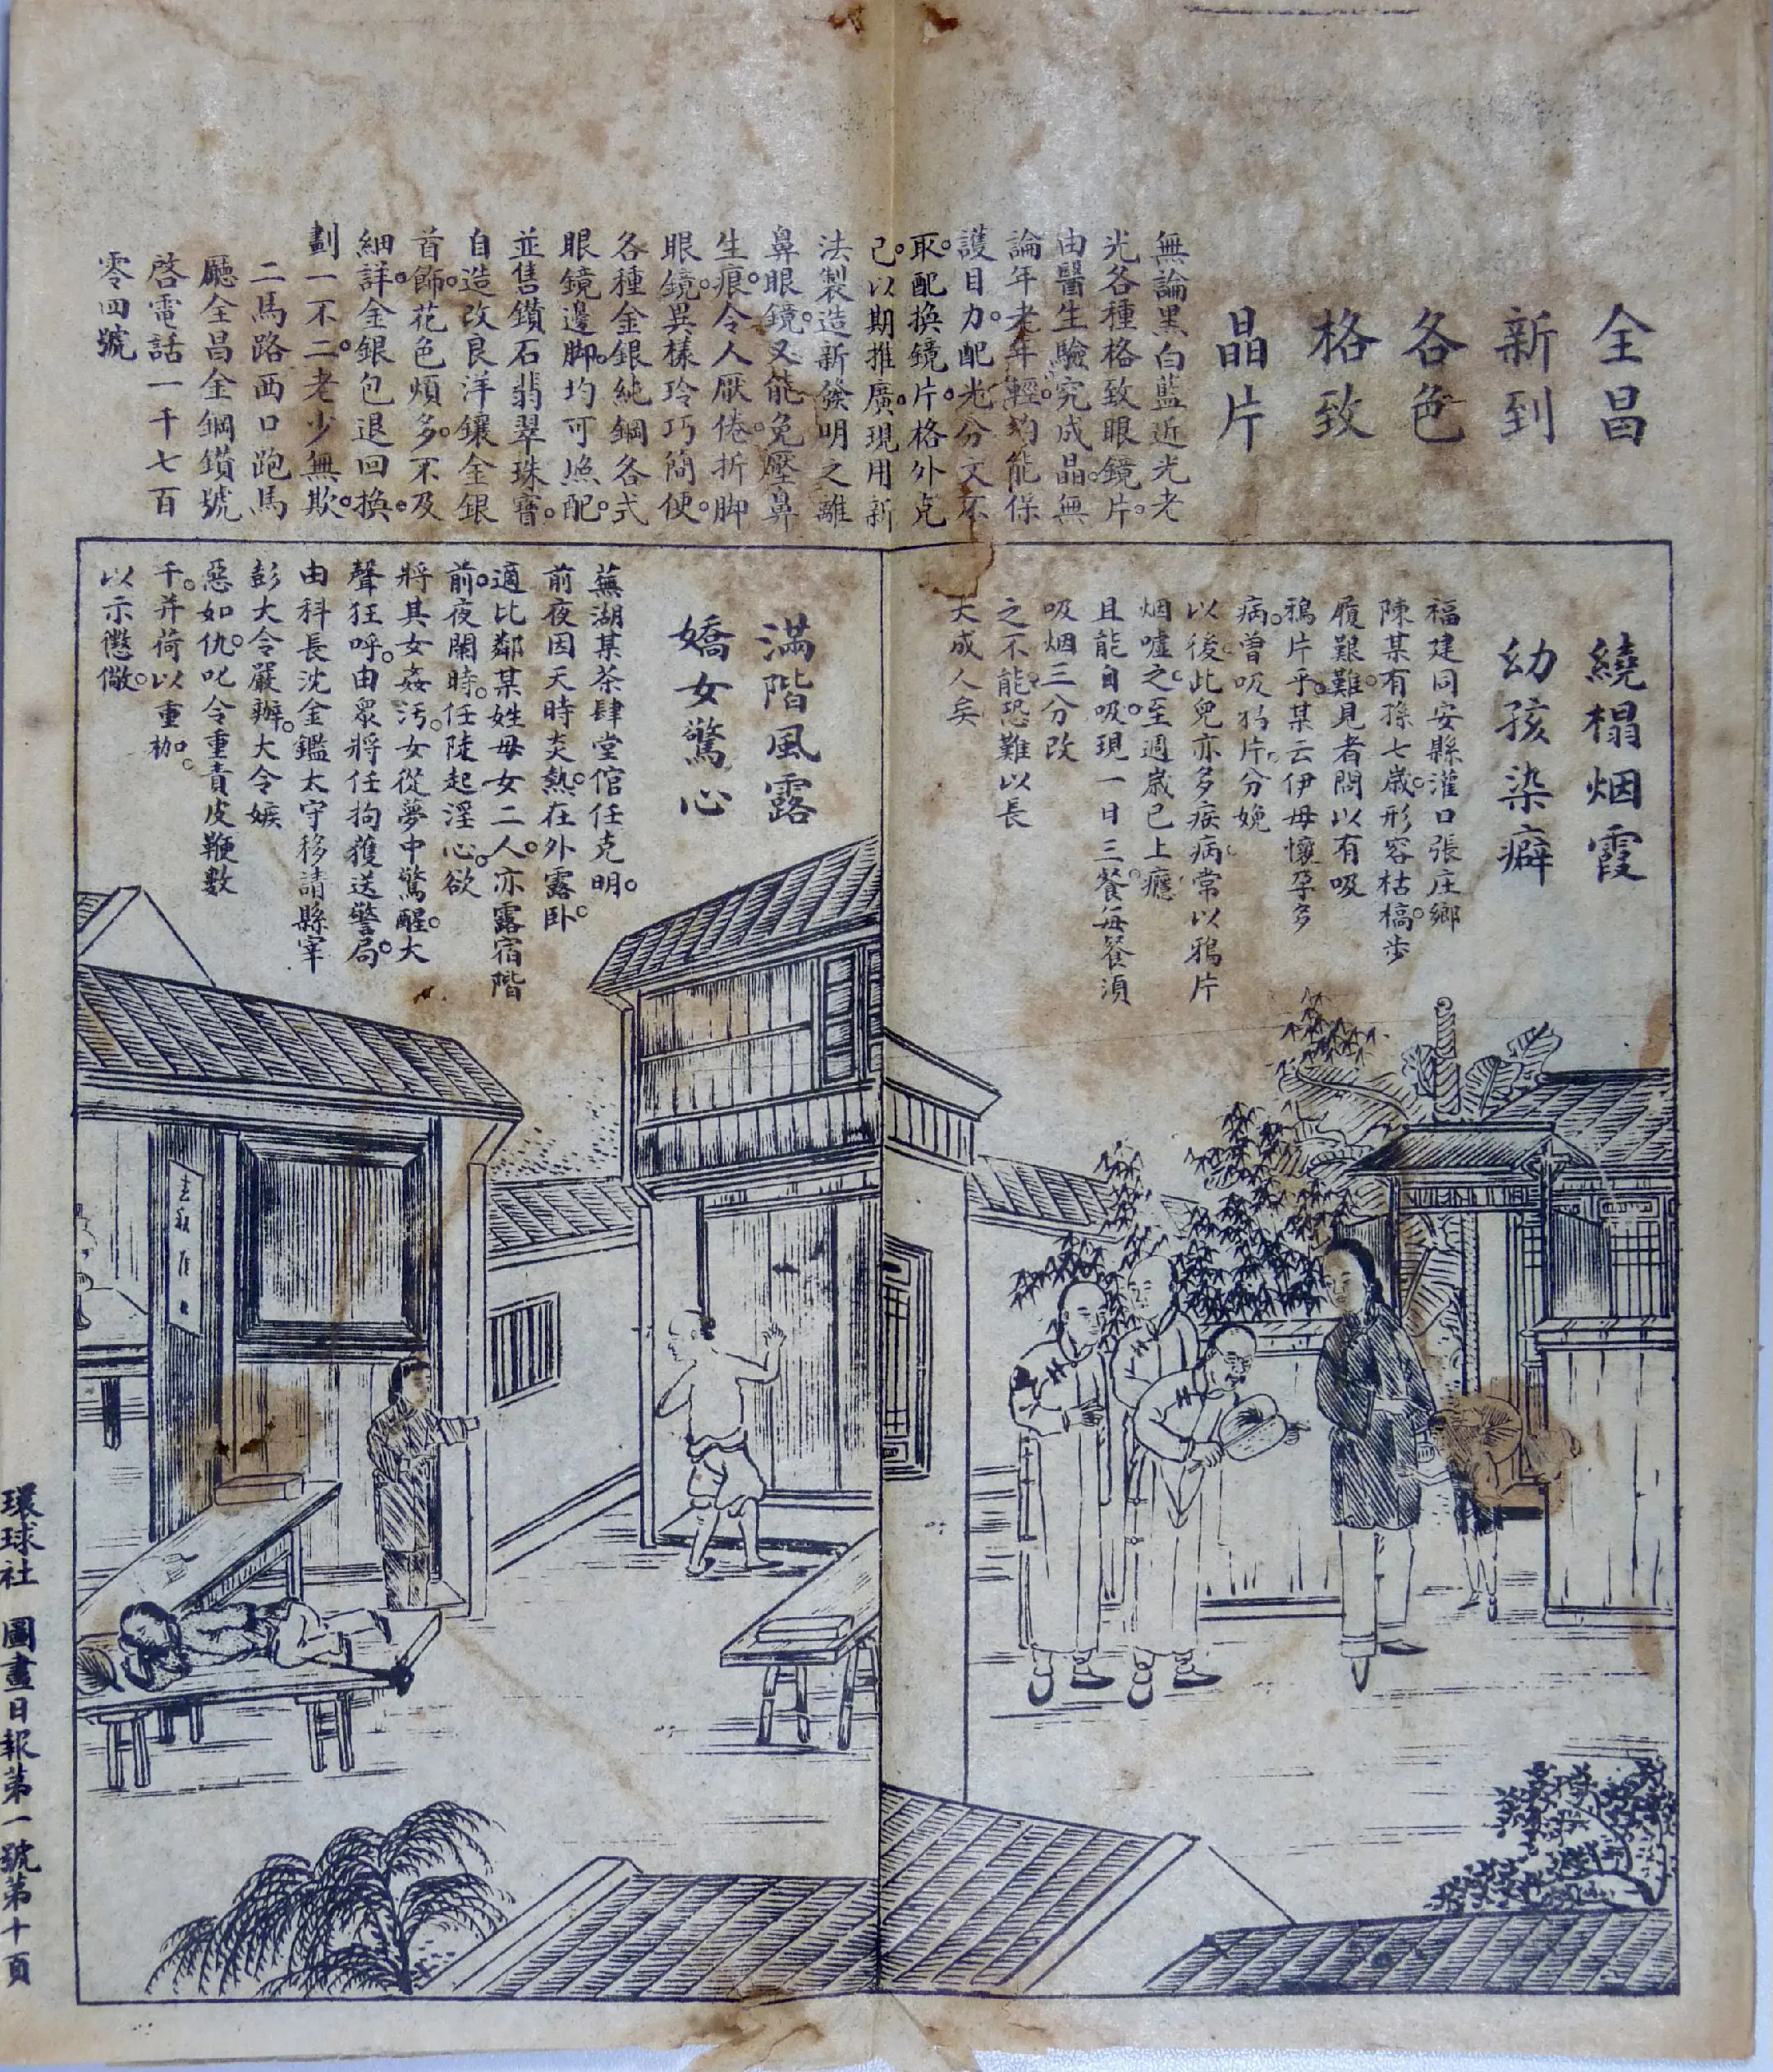 全昌
新到
各色
格致
晶片
無論黑白藍近光老
光各種格致眼鏡片。
由醫生驗究成晶。無
論年老年輕。均能保
護目力。配光分文不
取。配換鏡片。格外克
己。以期推廣。現用新
法製造新發明之離
鼻眼鏡。又能免壓鼻
生痕。令人厭倦。折脚
眼鏡。異樣玲巧簡便。
各種金銀純鋼各式
眼鏡邊脚。均可照配。
並售鑽石翡翠珠寶。
自造改良洋鑲金銀
首飾。花色煩多。不及
細詳。金銀包退回換。
劃一不二。老少無欺。
二馬路西口跑馬
廳全昌金鋼鑽號
啓電話一千七百
零四號
繞榻烟霞
幼孩染癖
福建同安縣灌口張庄鄉
陳某有孫七歲。形容枯槁。步
履艱難。見者問以有吸
鴉片乎。某云伊母懷孕多
病。曾吸鴉片。分娩
以後。此兒亦多疾病。常以鴉片
烟噓之。至週歲已上癮
且能自吸。現一日三餐。每餐須
吸烟三分。改
之不能。恐難以長
大成人矣
滿階風露
嬌女驚心
蕪湖某茶肆堂倌任克明。
前夜因天時炎熱。在外露卧。
適比鄰某姓母女二人。亦露宿階
前。夜闌時。任陡起淫心。欲
將其女姦汚。女從夢中驚醒。大
聲狂呼。由眾將任拘獲送警局。
由科長沈金鑑太守移請縣宰
彭大令嚴辦。大令嫉
惡如仇。叱令重責皮鞭數
千。并荷以重枷。
以示懲儆。
環球社 圖畫日報第一號第十頁